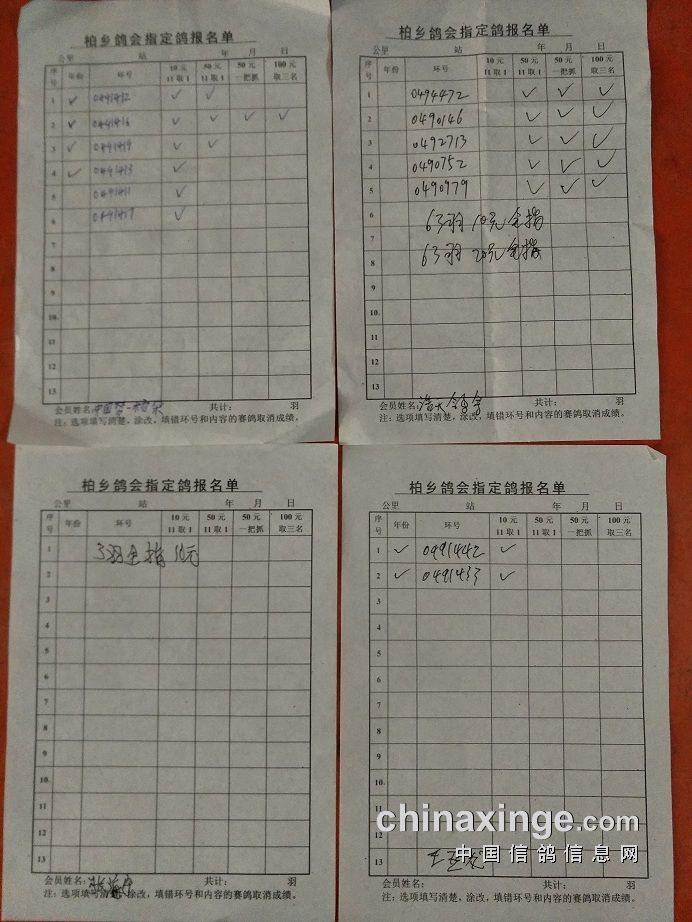 柏乡鸽会指定鸽报名单
公里 站 年 月 日
序号 年份 环号 10元11取1 50元11取1 50元一把抓 100元取三名
1 ✓ 0491412 ✓ ✓
2 ✓ 0491416 ✓ ✓ ✓ ✓
3 ✓ 0491419 ✓ ✓
4 ✓ 0491413 ✓
5 0491411 ✓
6 0491417 ✓
7
8
9
10
11
12
13
会员姓名: 共计: 羽
注:选项填写清楚,涂改,填错环号和内容的赛鸽取消成绩。
柏乡鸽会指定鸽报名单
公里 站 年 月 日
序号 年份 环号 10元11取1 50元11取1 50元一把抓 100元取三名
1 0494472 ✓ ✓ ✓
2 0490146 ✓ ✓ ✓
3 0492713 ✓ ✓ ✓
4 0490752 ✓ ✓ ✓
5 0490979 ✓ ✓ ✓
6 63羽 10元全指
7
8 63羽 20元全指
9
10
11
12
13
会员姓名: 共计: 羽
注:选项填写清楚,涂改,填错环号和内容的赛鸽取消成绩。
柏乡鸽会指定鸽报名单
公里 站 年 月 日
序号 年份 环号 10元11取1 50元11取1 50元一把抓 100元取三名
1 3羽全指10元
2
3
4
5
6
7
8
9
10
11
12
13
会员姓名: 共计: 羽
注:选项填写清楚,涂改,填错环号和内容的赛鸽取消成绩。
柏乡鸽会指定鸽报名单
公里 站 年 月 日
序号 年份 环号 10元11取1 50元11取1 50元一把抓 100元取三名
1 ✓ 0491442 ✓
2 ✓ 0491433 ✓
3
4
5
6
7
8
9
10
11
12
13
会员姓名: 共计: 羽
注:选项填写清楚,涂改,填错环号和内容的赛鸽取消成绩。
chinaxinge.com
中国信鸽信息网